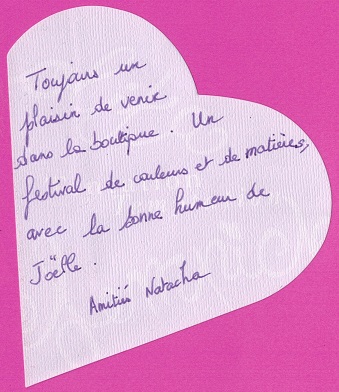 Toujours un
plaisir de venir
dans la boutique. Un
festival de couleurs et de matières,
avec la bonne humeur de
Joëlle.
Amitiés Natacha